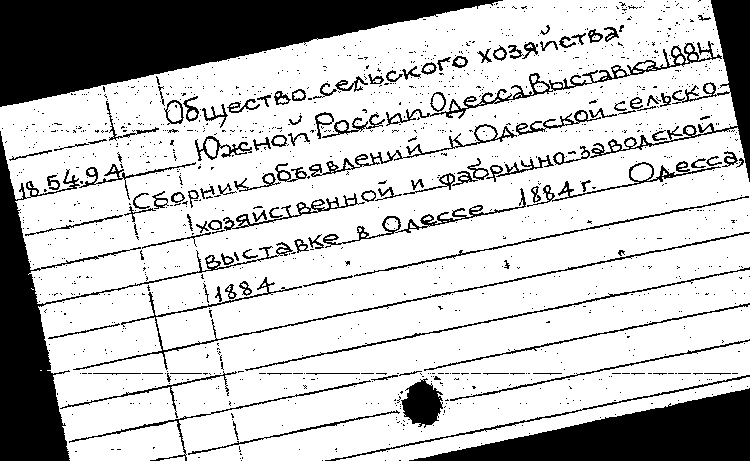 Общество сельского хозяйства
Южной России. Одесса. Выставка. 1884.
18.54.9.4
Сборник объявлений к Одесской сельско-
хозяйственной и фабрично-заводской
выставке в Одессе 1884 г. Одесса,
1884.